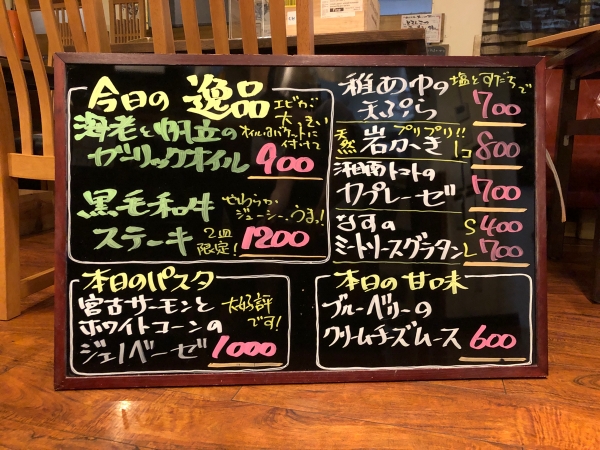 今日の 逸品
海老と帆立の
ガーリックオイル
エビが
大っきい
オイルはバケットに
付けて
900
黒毛和牛
ステーキ
やわらか
ジューシー、うまっ!
2皿
限定!
1200
本日のパスタ
宮古サーモンと
ホワイトコーンの
ジェノベーゼ
大好評
です!
1000
稚あゆの
天ぷら
塩とすだちで
700
天然 岩がき
プリプリ!!
1コ
800
汗南トマトの
カプレーゼ
700
なすの
ミートソースグラタン
S 400
L 700
本日の甘味
ブルーベリーの
クリームチーズムース
600